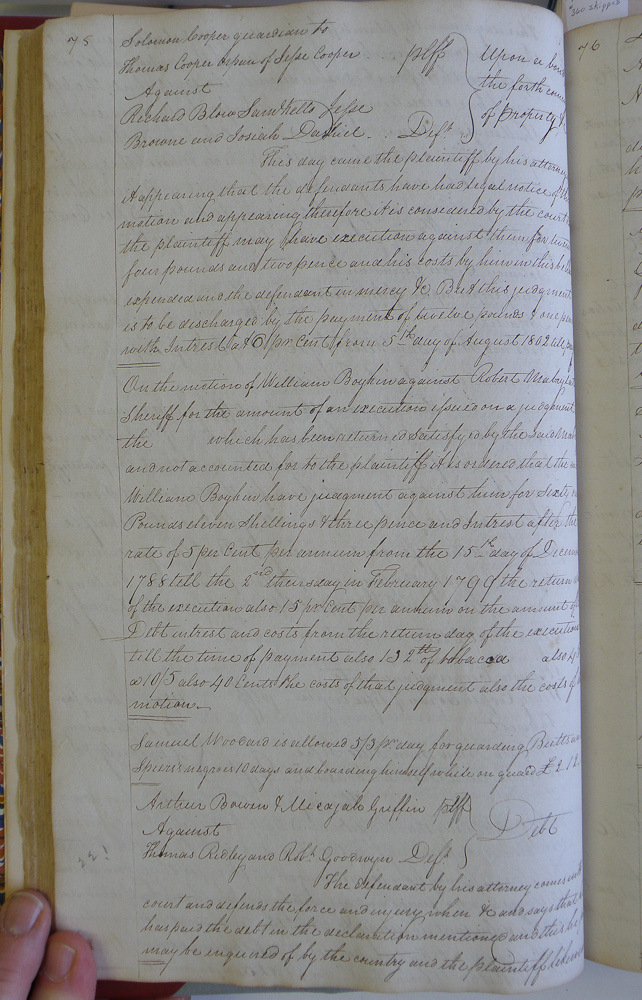 75
Solomon Cooper guardian to
Thomas Cooper orpan of Jesse Cooper ... plff
Upon a bon
Against
the forth com
Richard Blow Saml Kello Jesse
of property
Browne and Josiah Dashiel .. Defts
This day came the plaintiff by his attorney
it appearing that the defendants have had legal notice of
motion and appearing therefore it is considered by the court
the plaintiff may have execution against them for
four pounds and two pence and his costs by him in this
expended and the defendant in mercy &c But this judgment
is to be discharged by the payment of twelve pounds & one
with Intrest at 6 pr Cent from 5th day of August 1802 till
On the motion of William Boykin against Robert Mabry
Sheriff for the amount of an execution issued on a judgment
the which has been returned satisfyed by the said
and not accounted for to the plaintiff it is ordered that the
William Boykin have judgment against them for Sixty
Pounds eleven Shellings & three pence and Intrest after the
rate of 5 per Cent per annum from the 15th day of Decem
1788 tell the 2nd thursday in February 1799 the return
of the execution also 15 pr Cent per annum on the amount of
Debt intrest and costs from the return day of the execution
till the time of payment also 132 lb of tobacco also
a 10/5 also 40 Cents the costs of that judgment also the costs of
motion
Samuel Woodard is allowed 5/3 pr day for guarding Butts
Spiers's negroes 10 days and boarding himself while on guard £2.12
Arthur Bowen & Micajah Griffin plff
Against
Debt
Thomas Ridley and Robt. Goodwyn Defts
The defendant by his attorney comes into
court and defends the force and injury when &c and says that
has paid the debt in the declaration mentioned and this he
may be inquired of by the country and the plaintiff likewise
76